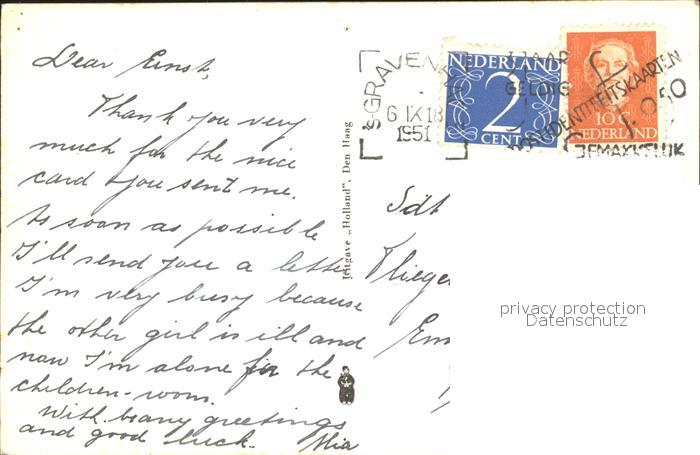 Dear Ernst,
Thank you very
much for the nice
card you sent me.
As soon as possible
I'll send you a letter
I'm very busy because
the other girl is ill and
now I'm alone for the
children-room.
With many greetings
and good luck. Mia
Uitgave „Holland", Den Haag
's-GRAVENHAGE
6 IX 18
1951
NEDERLAND
2
CENT
10 C
NEDERLAND
JAAR
GELDIG
POSTIDENTITEITSKAARTEN
GEMAKKELIJK
Sdt
Vlieger
Em
privacy protection
Datenschutz